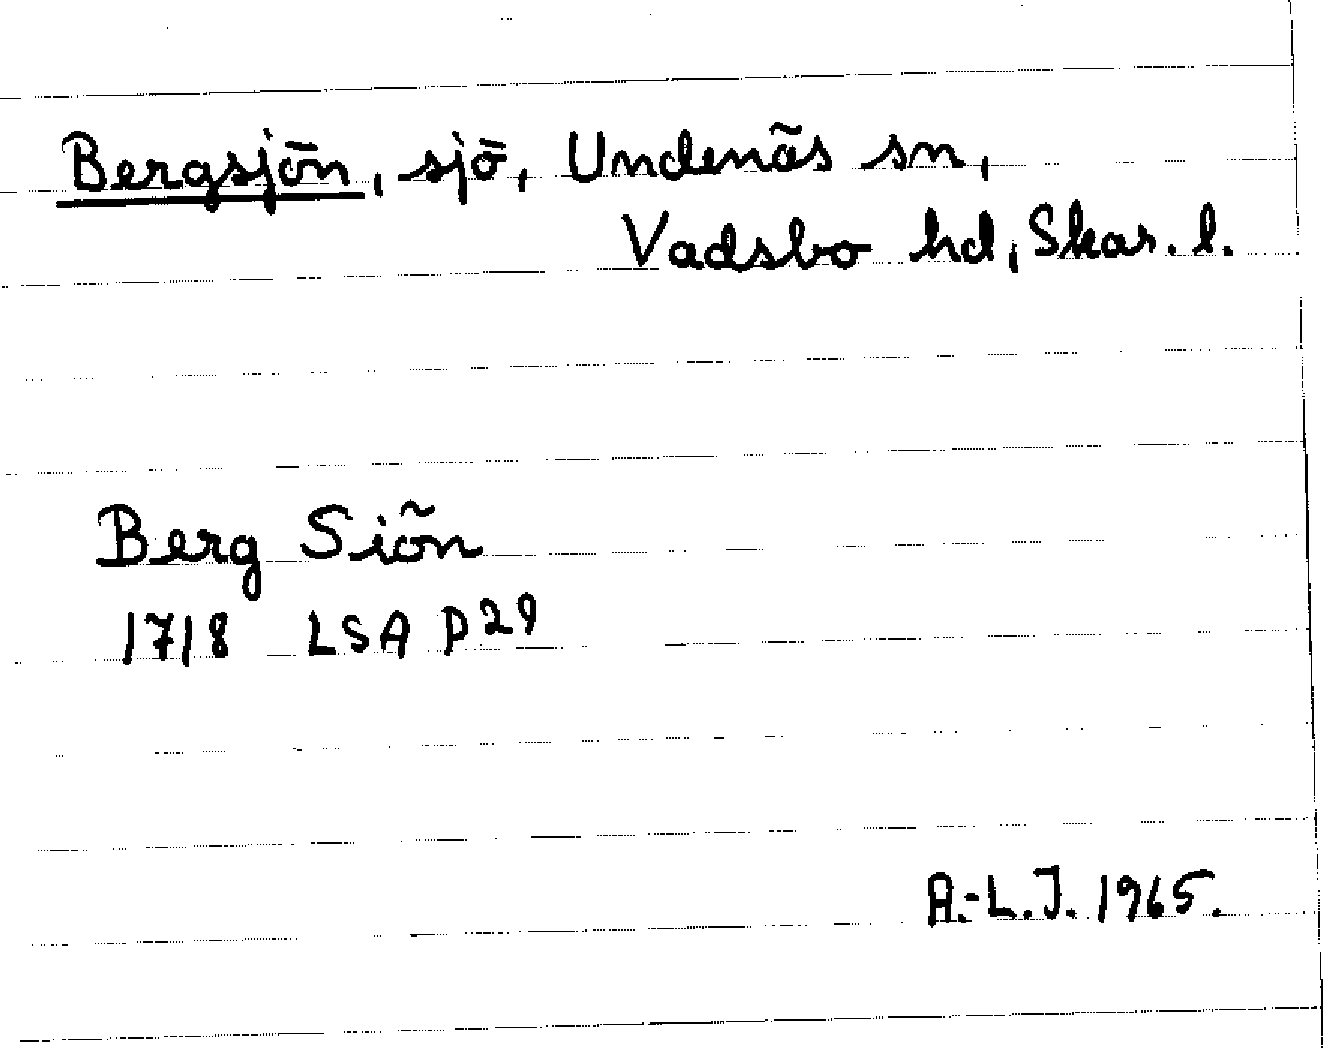 Bergsjön, sjö, Undenäs sn,
Vadsbo hd, Skar. l.
Berg Siön
1718 LSA P29
A.-L.J. 1965.